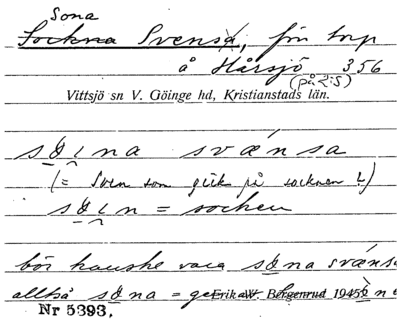 Sona
Sockna Svensa, fin torp
å Hårsjö 356
(på 2:5)
Vittsjö sn V. Göinge hd, Kristianstads län.
söina svænsa
(= Sven som gick på socknen ?)
söin = socken
bör kanske vara söna svænsa
alltså söna =
Erik W. Bergenrud 1945
Nr 5393,